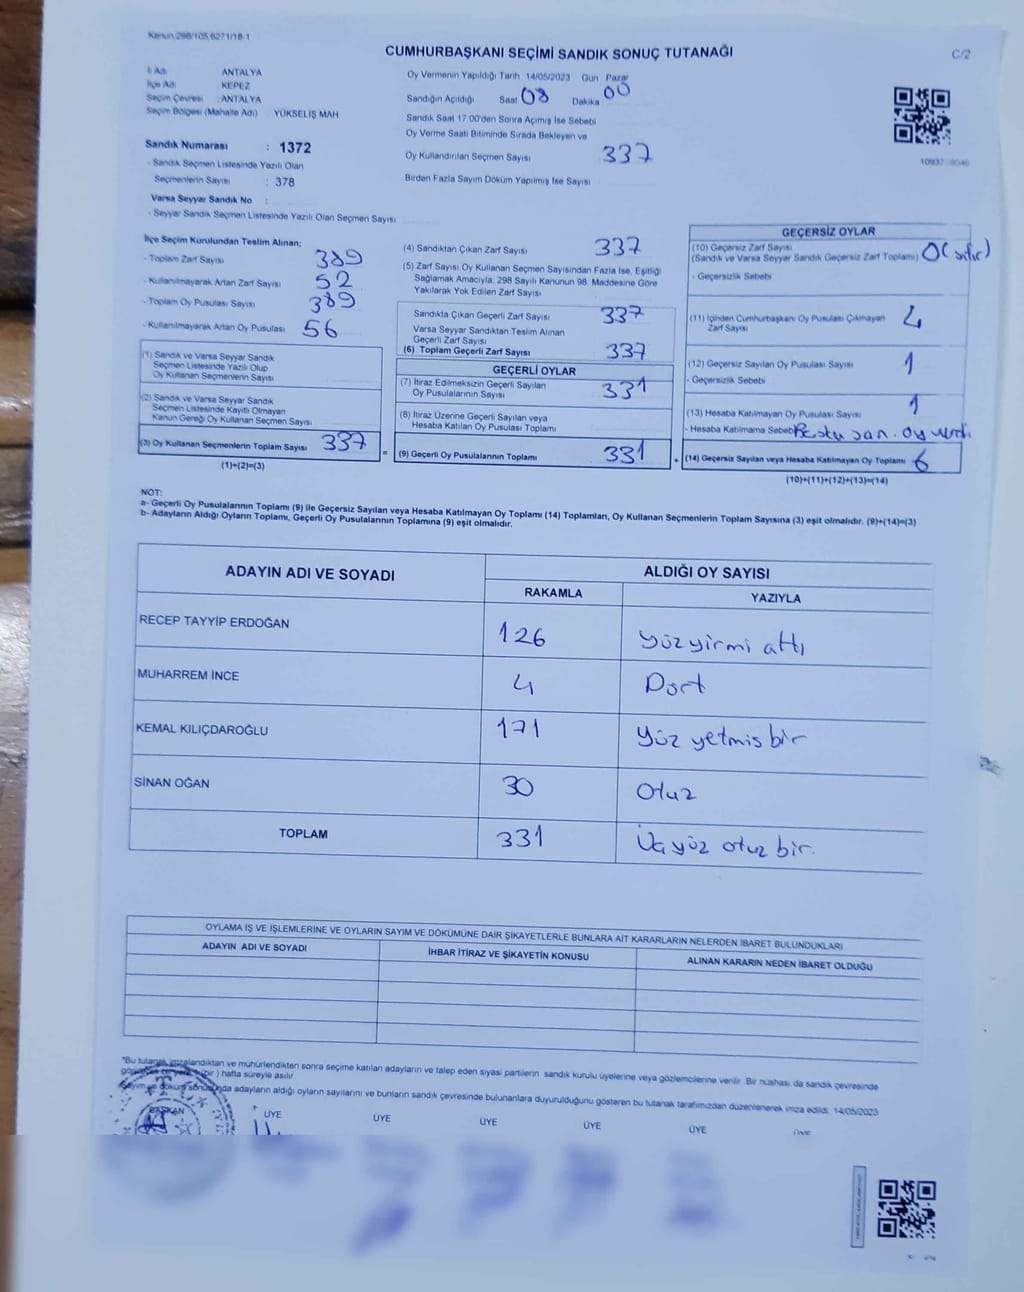 Kanun 298/105,6271/18-1
CUMHURBAŞKANI SEÇİMİ SANDIK SONUÇ TUTANAĞI
C/2
İl Adı ANTALYA
İlçe Adı KEPEZ
Seçim Çevresi : ANTALYA
Seçim Bölgesi (Mahalle Adı) YÜKSELİŞ MAH
Sandık Numarası : 1372
- Sandık Seçmen Listesinde Yazılı Olan
Seçmenlerin Sayısı : 378
Varsa Seyyar Sandık No :
- Seyyar Sandık Seçmen Listesinde Yazılı Olan Seçmen Sayısı
Oy Vermenin Yapıldığı Tarih 14/05/2023 Gün Pazar
Sandığın Açıldığı Saat 08 Dakika 00
Sandık Saat 17:00'den Sonra Açımış İse Sebebi
Oy Verme Saati Bitiminde Sırada Bekleyen ve
Oy Kullandırılan Seçmen Sayısı 337
Birden Fazla Sayım Döküm Yapılmış İse Sayısı
İlçe Seçim Kurulundan Teslim Alınan;
- Toplam Zarf Sayısı 389
- Kullanılmayarak Artan Zarf Sayısı 52
- Toplam Oy Pusulası Sayısı 389
- Kullanılmayarak Artan Oy Pusulası 56
(1) Sandık ve Varsa Seyyar Sandık
Seçmen Listesinde Yazılı Olup
Oy Kullanan Seçmenlerin Sayısı
(2) Sandık ve Varsa Seyyar Sandık
Seçmen Listesinde Kayıtlı Olmayan
Kanun Gereği Oy Kullanan Seçmen Sayısı
(3) Oy Kullanan Seçmenlerin Toplam Sayısı 337
(1)+(2)=(3)
=
(4) Sandıktan Çıkan Zarf Sayısı 337
(5) Zarf Sayısı Oy Kullanan Seçmen Sayısından Fazla İse, Eşitliği
Sağlamak Amacıyla, 298 Sayılı Kanunun 98. Maddesine Göre
Yakılarak Yok Edilen Zarf Sayısı
Sandıkta Çıkan Geçerli Zarf Sayısı 337
Varsa Seyyar Sandıktan Teslim Alınan
Geçerli Zarf Sayısı
(6) Toplam Geçerli Zarf Sayısı 337
GEÇERLİ OYLAR
(7) İtiraz Edilmeksizin Geçerli Sayılan
Oy Pusulalarının Sayısı 331
(8) İtiraz Üzerine Geçerli Sayılan veya
Hesaba Katılan Oy Pusulası Toplamı
(9) Geçerli Oy Pusulalarının Toplamı 331
+
GEÇERSİZ OYLAR
(10) Geçersiz Zarf Sayısı
(Sandık ve Varsa Seyyar Sandık Geçersiz Zarf Toplamı) 0 (sıfır)
- Geçersizlik Sebebi
(11) İçinden Cumhurbaşkanı Oy Pusulası Çıkmayan
Zarf Sayısı 4
(12) Geçersiz Sayılan Oy Pusulası Sayısı 1
- Geçersizlik Sebebi
(13) Hesaba Katılmayan Oy Pusulası Sayısı 1
- Hesaba Katılmama Sebebi oy verdi
(14) Geçersiz Sayılan veya Hesaba Katılmayan Oy Toplamı 6
(10)+(11)+(12)+(13)=(14)
NOT:
a- Geçerli Oy Pusulalarının Toplamı (9) ile Geçersiz Sayılan veya Hesaba Katılmayan Oy Toplamı (14) Toplamları, Oy Kullanan Seçmenlerin Toplam Sayısına (3) eşit olmalıdır. (9)+(14)=(3)
b- Adayların Aldığı Oyların Toplamı, Geçerli Oy Pusulalarının Toplamına (9) eşit olmalıdır.
ADAYIN ADI VE SOYADI ALDIĞI OY SAYISI
RAKAMLA YAZIYLA
RECEP TAYYİP ERDOĞAN 126 yüzyirmi altı
MUHARREM İNCE 4 Dört
KEMAL KILIÇDAROĞLU 171 yüz yetmis bir
SİNAN OĞAN 30 Otuz
TOPLAM 331 Üçyüz otuz bir.
OYLAMA İŞ VE İŞLEMLERİNE VE OYLARIN SAYIM VE DÖKÜMÜNE DAİR ŞİKAYETLERLE BUNLARA AİT KARARLARIN NELERDEN İBARET BULUNDUKLARI
ADAYIN ADI VE SOYADI İHBAR İTİRAZ VE ŞİKAYETİN KONUSU ALINAN KARARIN NEDEN İBARET OLDUĞU
"Bu tutanak imzalandıktan ve mühürlendikten sonra seçime katılan adayların ve talep eden siyasi partilerin sandık kurulu üyelerine veya gözlemcilerine verilir. Bir nüshası da sandık çevresinde
(bir) hafta süreyle asılır
Sayım ve döküm sonucunda adayların aldığı oyların sayılarını ve bunların sandık çevresinde bulunanlara duyurulduğunu gösteren bu tutanak tarafımızdan düzenlenerek imza edildi. 14/05/2023
BAŞKAN ÜYE ÜYE ÜYE ÜYE ÜYE ÜYE